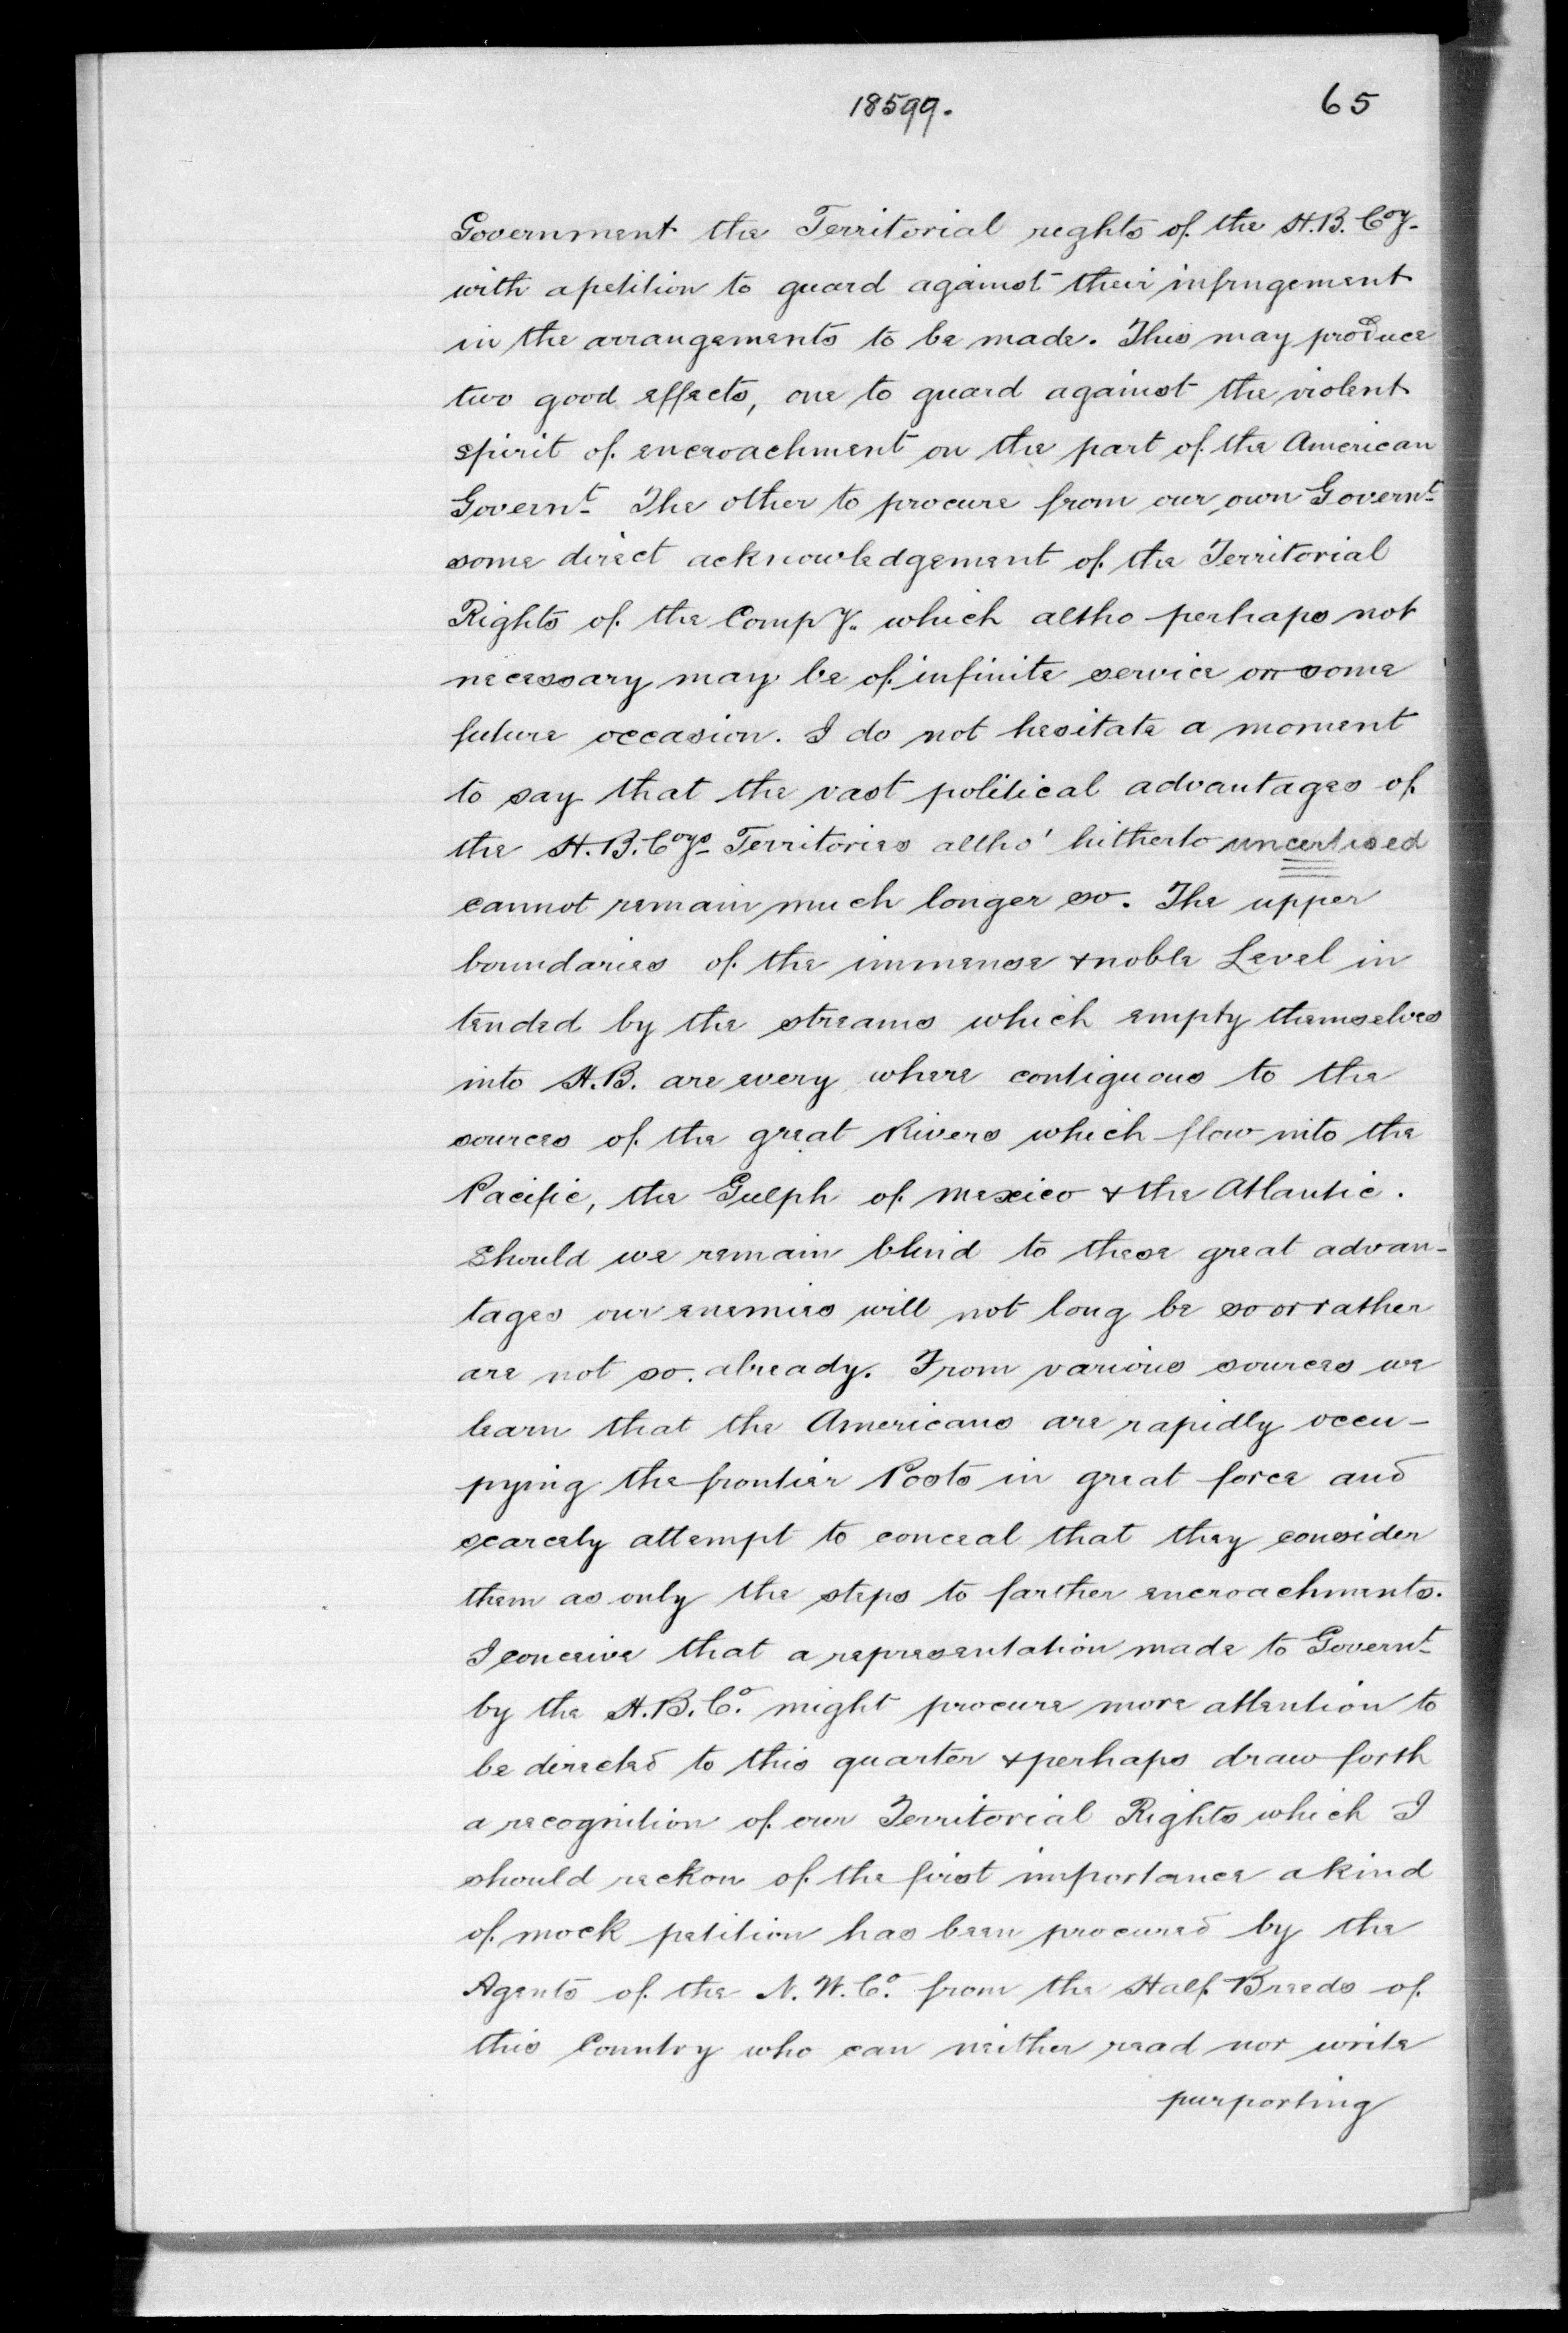 18599.
65
Government the Territorial rights of the H.B. Coy.
with a petition to guard against their infringement
in the arrangements to be made. This may produce
two good effects, one to guard against the violent
spirit of encroachment on the part of the American
Governt. The other to procure from our own Governt.
some direct acknowledgement of the Territorial
Rights of the Compy. which altho perhaps not
necessary may be of infinite service on some
future occasion. I do not hesitate a moment
to say that the vast political advantages of
the H.B. Coys. Territories altho' hitherto uncertised
cannot remain much longer so. The upper
boundaries of the immense & noble Level in
tended by the streams which empty themselves
into H.B. are every where contiguous to the
sources of the great Rivers which flow into the
Pacific, the Gulph of Mexico & the Atlantic.
Should we remain blind to these great advan-
tages our enemies will not long be so or rather
are not so already. From various sources we
learn that the Americans are rapidly occu-
pying the frontier Posts in great force and
scarcely attempt to conceal that they consider
them as only the steps to farther encroachments.
I conceive that a representation made to Governt.
by the H.B. Co. might procure more attention to
be directed to this quarter & perhaps draw forth
a recognition of our Territorial Rights which I
should reckon of the first importance a kind
of mock petition has been procured by the
Agents of the N.W. Co. from the Half Breeds of
this Country who can neither read nor write
purporting